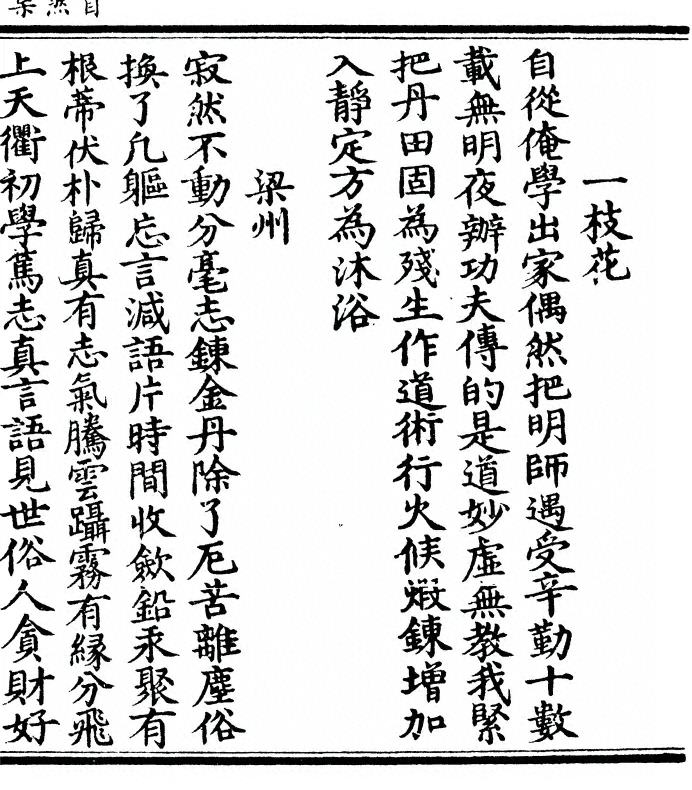 一枝花
自從俺學出家偶然把明師遇受辛勤十數
載無明夜辦功夫傳的是道妙虛無教我緊
把丹田固為殘生作道術行火候煅鍊增加
入靜定方為沐浴
梁州
寂然不動分毫志鍊金丹除了厄苦離塵俗
換了凡軀忘言減語片時間收斂鉛汞聚有
根蒂伏朴歸真有志氣騰雲躡霧有緣分飛
上天衢初學篤志真言語見世俗人貪財好